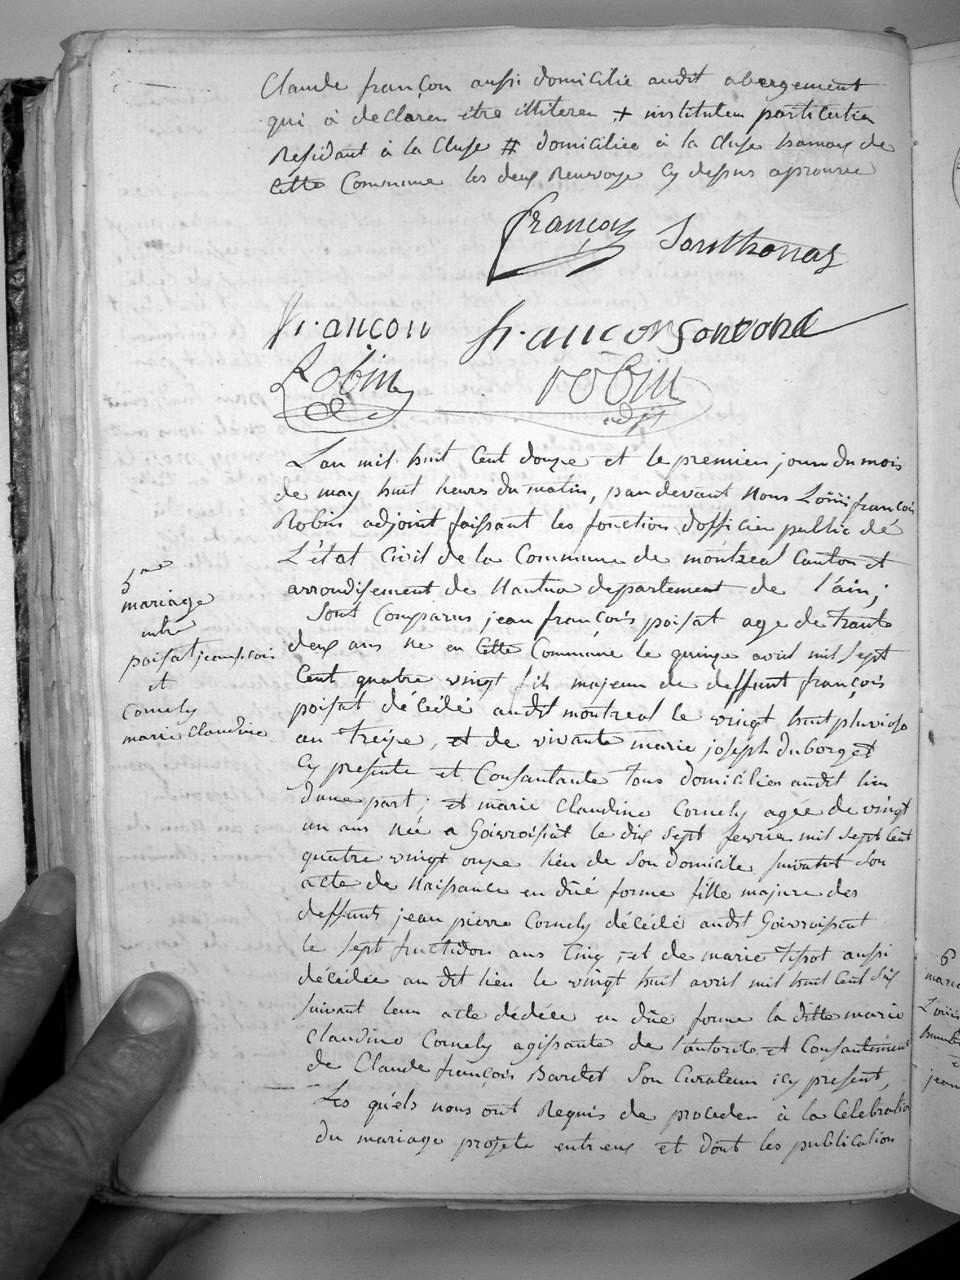 Claude françon aussi domicilié audit abergement
qui à declaren être illiteren + instituteu particulier
Residant à la Cluse # domiciliée à la Cluse hamaux de
Cette Commune les deux Renvoye Cy dessus aprouvée
françon Sonthonas
françon françon Sonthonax
Robin robin
adjt
L'an mil huit Cent douze et le premier jour du mois
de may huit heurs du matin, pandevant nous Loüis françois
Robin adjoint faissant les fonction dofficier public dé
L'état Civil de la Commune de montreal Canton et
arrondisement de Nantua departement de l'ain;
Sont Comparus jean françois poisat age de trante
deux ans né en Cette Commune le quinze avril mil sept
Cent quatre vingt fils majeur de deffunt françois
poisat décédé audit montreal le vingt huit pluviose
an treize, et de vivante marie joseph duborget
Cy presente et Consantante tous domiciliés audit lieu
d'une part; et marie Claudine Cornely agée de vingt
un ans née a Goivroissiat le dix sept fevrie mil sept Cent
quatre vingt onze lieu de son domicile suivant son
acte de naissance en düé forme fille majure des
deffunts jean pierre Cornely décédé audit Goivroissiat
le sept fructidor ans Cinq et de marie tissot aussi
décédée au dit lieu le vingt huit avril mil huit Cent six
suivant leur acte dédécé en düe forme la ditte marie
Claudine Cornely agissante de l'autorité et Consantement
de Claude françois Bardet son Curateur icy present,
Les quéls nous ont Requis de proceder à la Celebration
du mariage projeté entr'eux et dont les publication
5me
mariage
entre
poisat jean fçois
et
Cornely
marie Claudine
6